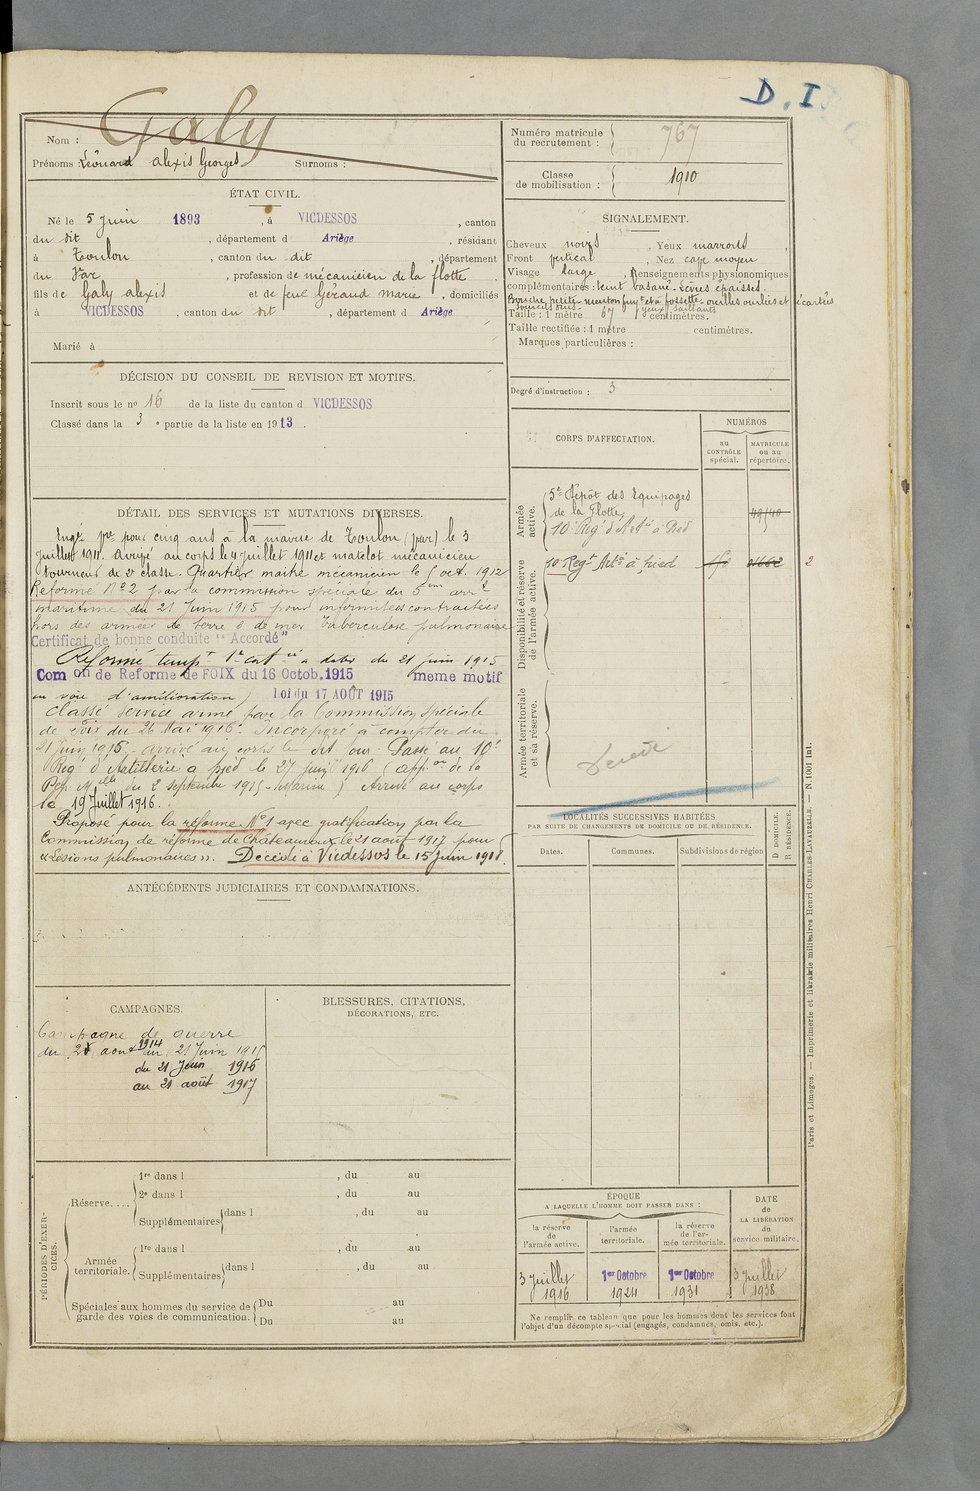 D. I
Galy
Nom :
Prénoms : Léonard Alexis Georges Surnoms :
Numéro matricule du recrutement : 767
Classe de mobilisation : 1910
ÉTAT CIVIL.
Né le 5 Juin 1893, à VICDESSOS, canton
du dit, département d Ariège, résidant
à Toulon, canton du dit, département
du Var, profession de mécanicien de la flotte,
fils de Galy Alexis et de feue Géraud Marie, domiciliés
à VICDESSOS, canton du dit, département d Ariège
Marié à
SIGNALEMENT.
Cheveux noirs. Yeux marrons,
Front vertical. Nez cave moyen
Visage large, Renseignements physionomiques
complémentaires : teint basané - Lèvres épaisses.
Bouche petite menton fuyt et à fossette - oreilles ourlées et écartés
yeux saillants
Taille : 1 mètre 67 centimètres.
Taille rectifiée : 1 mètre centimètres.
Marques particulières :
Degré d'instruction : 3
DÉCISION DU CONSEIL DE REVISION ET MOTIFS.
Inscrit sous le no 16 de la liste du canton d VICDESSOS
Classé dans la 3e partie de la liste en 1913.
DÉTAIL DES SERVICES ET MUTATIONS DIVERSES.
Engé vre pour cinq ans à la mairie de Toulon (Var) le 3
Juillet 1911. Arrivé au corps le 4 Juillet 1911 et matelot mécanicien
tourneur de 2e classe. Quartier maitre mécanicien le 1 oct. 1912
Réformé No 2 par la commission spéciale du 5ème arrt
maritime du 21 Juin 1915 pour infirmités contractées
hors des armées de terre & de mer Tuberculose pulmonaire
Certificat de bonne conduite "Accordé"
Réformé tempt 1e catie à dater du 21 juin 1915
Comon de Reforme de FOIX du 16 Octob. 1915 meme motif
en voie d'amélioration) Loi du 17 AOUT 1915
Classé service armé par la Commission spéciale
de Foix du 26 Mai 1916. Incorporé à compter du
21 juin 1916 - arrivé au corps le dit jour. Passé au 10e
Régt d'Artillerie à pied le 27 juin 1916 (appon de la
Dép. Mlle du 2 septembre 1915 - Marine) Arrivé au corps
le 19 Juillet 1916.
Proposé pour la réforme No 1 avec gratification par la
Commission de réforme de Châteauroux le 21 août 1917 pour
«Lésions pulmonaires». Décédé à Vicdessos le 15 Juin 1918.
CORPS D'AFFECTATION.
NUMÉROS
au CONTRÔLE spécial.
MATRICULE ou au répertoire.
Armée active.
5e Dépôt des Equipages
de la Flotte
10e Régt d'Artie à Pied
Disponibilité et réserve de l'armée active.
10 Régt Artie à pied 2
Armée territoriale et sa réserve.
Décédé
LOCALITÉS SUCCESSIVES HABITÉES
PAR SUITE DE CHANGEMENTS DE DOMICILE OU DE RÉSIDENCE.
Dates.
Communes.
Subdivisions de région
D DOMICILE.
R RÉSIDENCE.
ANTÉCÉDENTS JUDICIAIRES ET CONDAMNATIONS.
CAMPAGNES.
Campagne de guerre
du 2 août 1914 au 21 Juin 1915
du 21 Juin 1916
au 21 août 1917
BLESSURES, CITATIONS,
DÉCORATIONS, ETC.
PÉRIODES D'EXERCICES.
Réserve....
1re dans l , du au
2e dans l , du au
Supplémentaires dans l , du au
Armée territoriale.
1re dans l , du au
Supplémentaires dans l , du au
Spéciales aux hommes du service de garde des voies de communication.
Du au
Du au
ÉPOQUE
A LAQUELLE L'HOMME DOIT PASSER DANS :
la réserve de l'armée active.
l'armée territoriale.
la réserve de l'armée territoriale.
DATE de LA LIBÉRATION du service militaire.
3 Juillet 1916
1er Octobre 1924
1er Octobre 1931
3 Juillet 1938
Ne remplir ce tableau que pour les hommes dont les services font
l'objet d'un décompte spécial (engagés, condamnés, omis, etc.).
Paris et Limoges. — Imprimerie et librairie militaires Henri CHARLES-LAVAUZELLE. — N. 1001 int.